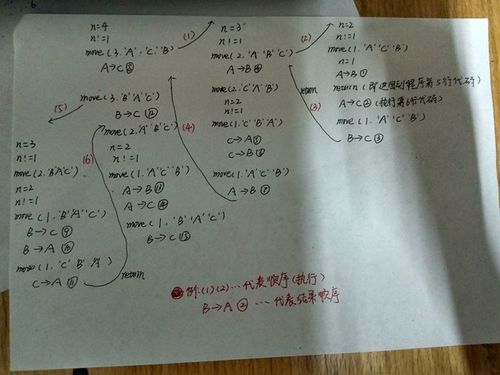 n=4
n!=1
move(3.'A'.'C'.'B')
A→C⑧
(1)
n=3
n!=1
move(2.'A''B''C')
A→B④
move(2.'C''A''B')
n=2
n!=1
move(1.'C''B''A')
C→A⑤
C→B⑥
move(1.'A''C''B')
A→B⑦
(2)
n=2
n!=1
move(1.'A''C''B')
n=1
A→B①
return(即返回到程序第5行代码)
A→C②(执行第6行代码)
move(1.'A''C''B')
B→C③
return
(3)
(4)
(5)
move(3.'B''A''C')
B→C⑫
move(2.'A''B''C')
n=2
n!=1
move(1.'A''C''B')
A→B⑬
A→C⑭
move(1.'B''A''C')
B→C⑮
n=3
n!=1
move(2.'B''A''C')
n=2
n!=1
move(1.'B''A''C')
B→C⑨
B→A⑩
move(1.'C''B''A')
C→A⑪
(6)
return
例:(1)(2)…代表顺序(执行)
B→A②…代表结果顺序